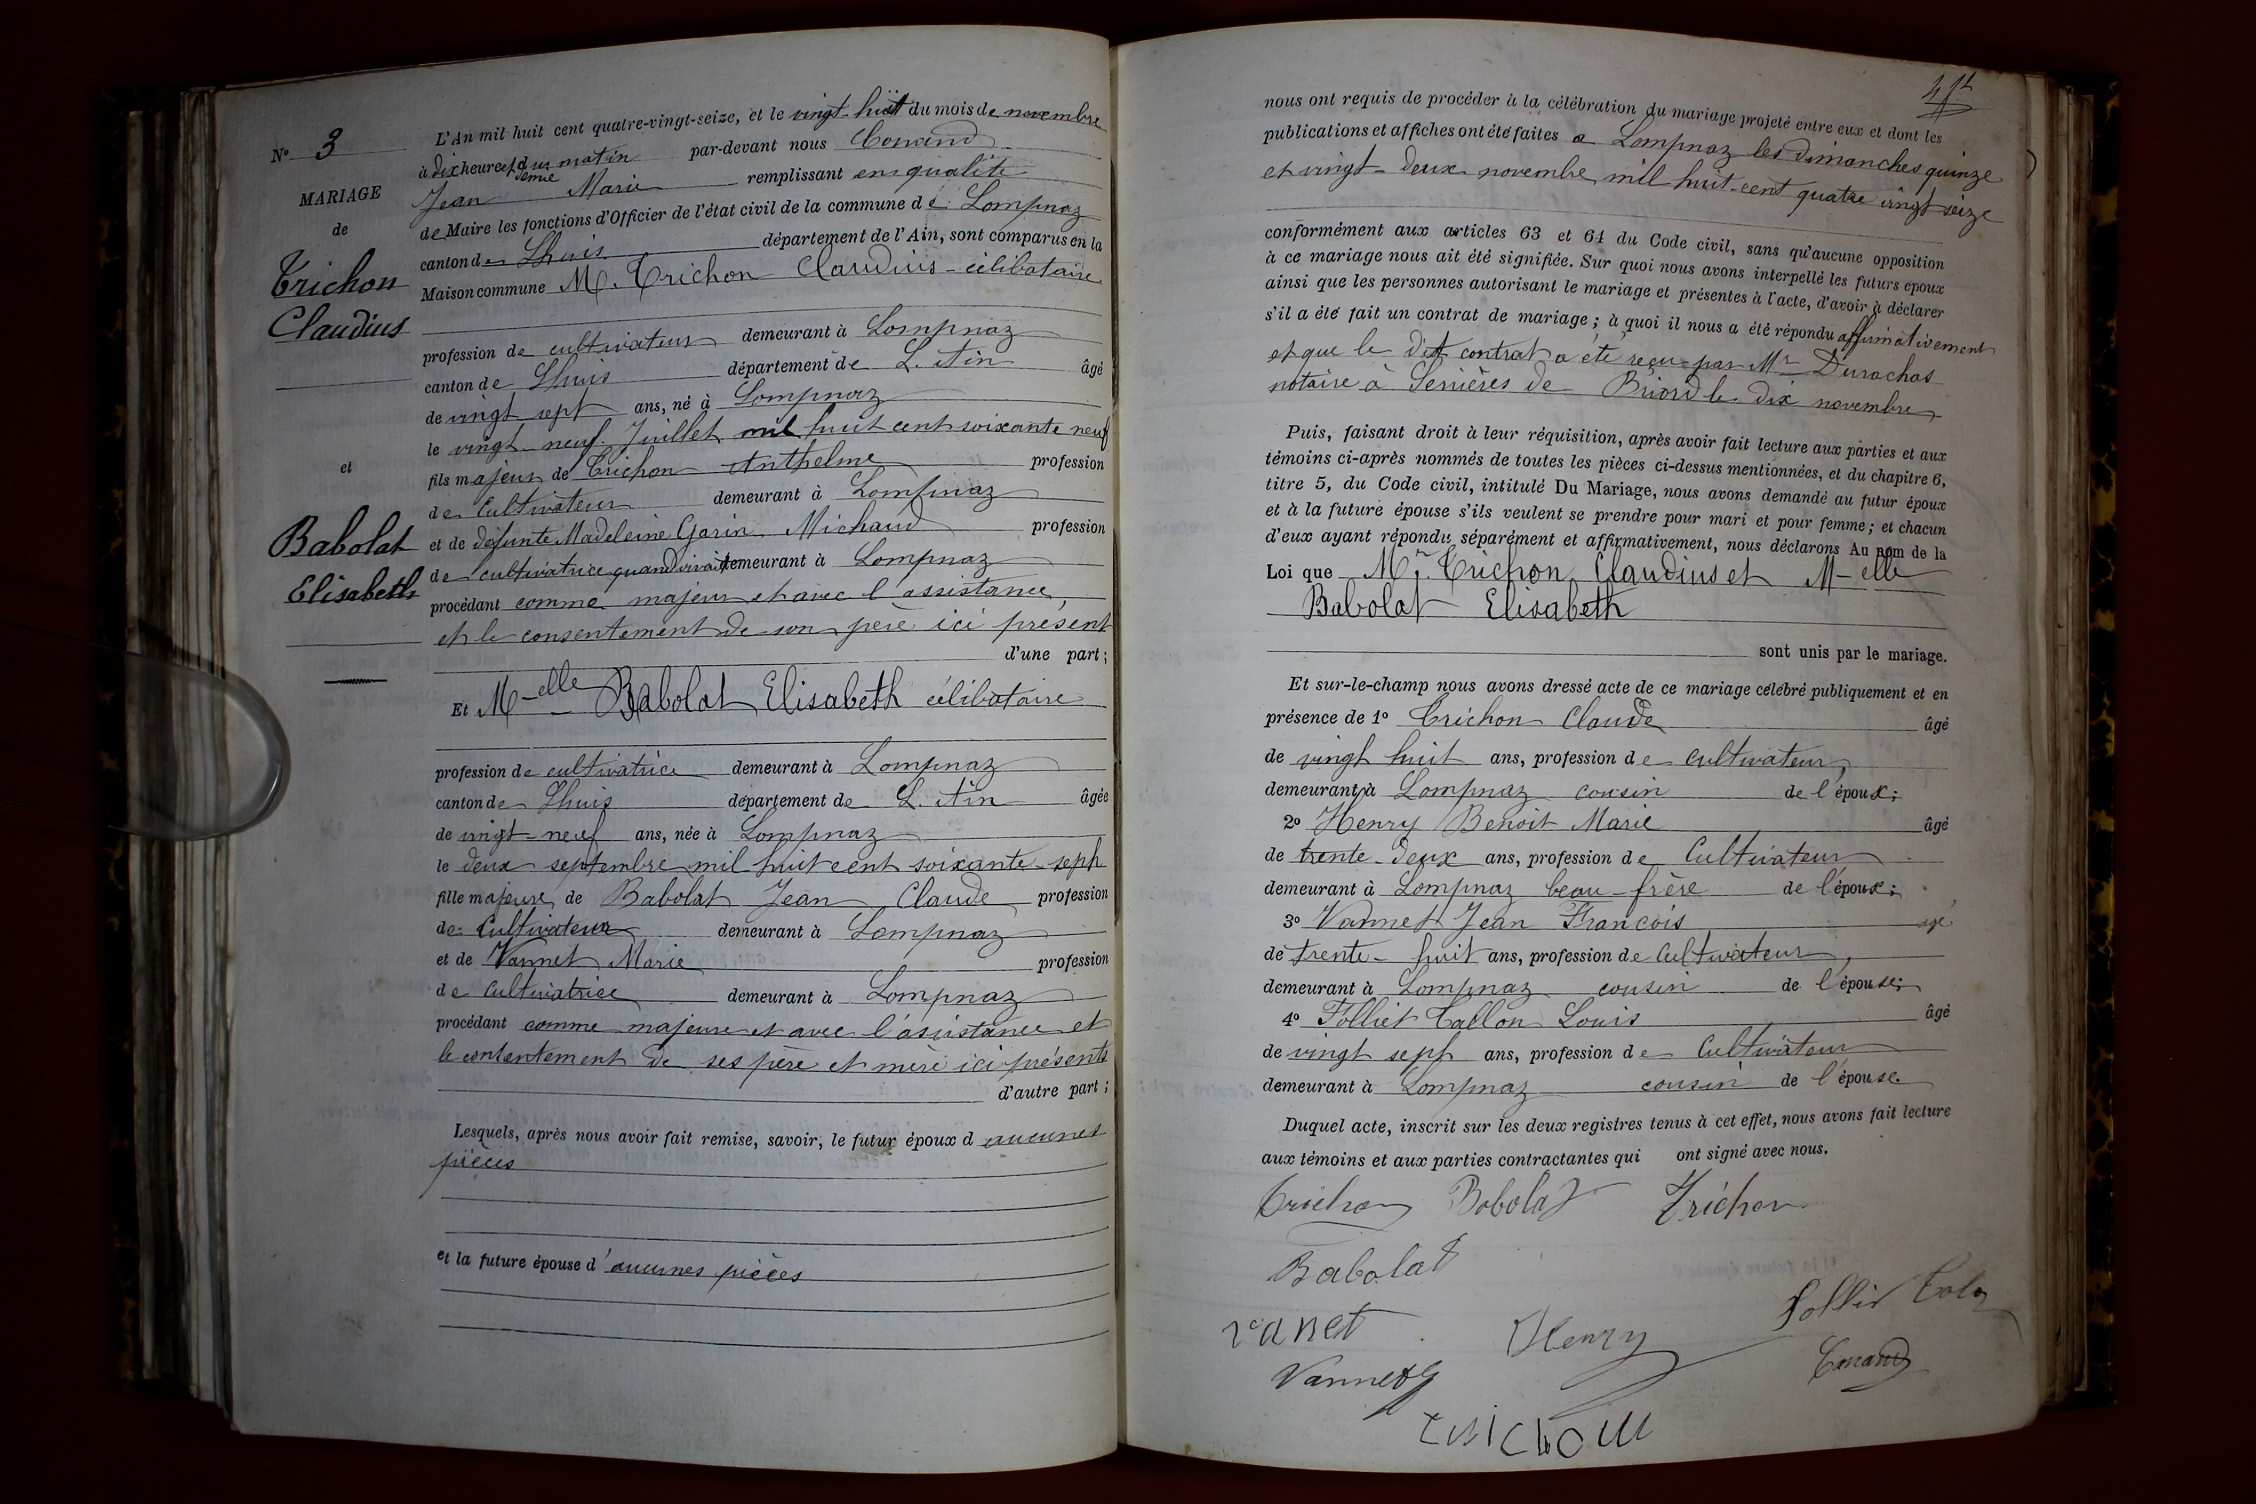 N° 3
MARIAGE
de
Trichon
Claudius
et
Babolat
Elisabeth
L'An mil huit cent quatre-vingt-seize, et le vingt-huit du mois de novembre
à dix heures et demie du matin par-devant nous Conand
Jean Marie remplissant en qualité
de Maire les fonctions d'Officier de l'état civil de la commune de Lompnaz
canton de Lhuis département de l'Ain, sont comparus en la
Maison commune M. Trichon Claudius célibataire
profession de cultivateur demeurant à Lompnaz
canton de Lhuis département de L'Ain âgé
de vingt sept ans, né à Lompnaz
le vingt-neuf Juillet mil huit cent soixante neuf
fils majeur de Trichon Anthelme profession
de Cultivateur demeurant à Lompnaz
et de défunte Madeleine Garin Michaud profession
de cultivatrice quand vivait demeurant à Lompnaz
procédant comme majeur et avec l'assistance,
et le consentement de son père ici présent
d'une part;
Et M-elle Babolat Elisabeth célibataire
profession de cultivatrice demeurant à Lompnaz
canton de Lhuis département de L'Ain âgée
de vingt-neuf ans, née à Lompnaz
le deux septembre mil huit cent soixante-sept
fille majeure de Babolat Jean Claude profession
de Cultivateur demeurant à Lompnaz
et de Vannet Marie profession
de Cultivatrice demeurant à Lompnaz
procédant comme majeure et avec l'assistance et
le contentement de ses père et mère ici présents
d'autre part;
Lesquels, après nous avoir fait remise, savoir, le futur époux d aucunes
pièces
et la future épouse d'aucunes pièces
nous ont requis de procéder à la célébration du mariage projeté entre eux et dont les
publications et affiches ont été faites a Lompnaz les dimanches quinze
et vingt-deux novembre mil huit-cent quatre vingt seize
conformément aux articles 63 et 64 du Code civil, sans qu'aucune opposition
à ce mariage nous ait été signifiée. Sur quoi nous avons interpellé les futurs epoux
ainsi que les personnes autorisant le mariage et présentes à l'acte, d'avoir à déclarer
s'il a été fait un contrat de mariage; à quoi il nous a été répondu affirmativement
et que le dit contrat a été reçu par Mr Durochas
notaire à Serrières de Briord le dix novembre
Puis, faisant droit à leur réquisition, après avoir fait lecture aux parties et aux
témoins ci-après nommés de toutes les pièces ci-dessus mentionnées, et du chapitre 6,
titre 5, du Code civil, intitulé Du Mariage, nous avons demandé au futur époux
et à la future épouse s'ils veulent se prendre pour mari et pour femme; et chacun
d'eux ayant répondu séparément et affirmativement, nous déclarons Au nom de la
Loi que Mr Trichon Claudius et M-elle
Babolat Elisabeth
sont unis par le mariage.
Et sur-le-champ nous avons dressé acte de ce mariage célébré publiquement et en
présence de 1° Trichon Claude âgé
de vingt huit ans, profession de cultivateur,
demeurant à Lompnaz cousin de l'époux;
2° Henry Benoit Marie âgé
de trente-deux ans, profession de Cultivateur
demeurant à Lompnaz beau-frère de l'époux;
3° Vannet Jean François âgé
de trente-huit ans, profession de Cultivateur,
demeurant à Lompnaz cousin de l'épouse;
4° Folliet Tallon Louis âgé
de vingt sept ans, profession de Cultivateur
demeurant à Lompnaz cousin de l'épouse.
Duquel acte, inscrit sur les deux registres tenus à cet effet, nous avons fait lecture
aux témoins et aux parties contractantes qui ont signé avec nous.
Trichon Babolat Trichon
Babolat
vanet Henry
Conand
trichon